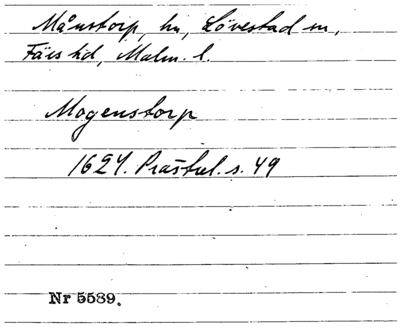 Månstorp, hn, Lövestad sn,
Färs hd, Malm. l.
Mogenstorp
1624. Prästrel. s. 49
Nr 5589.